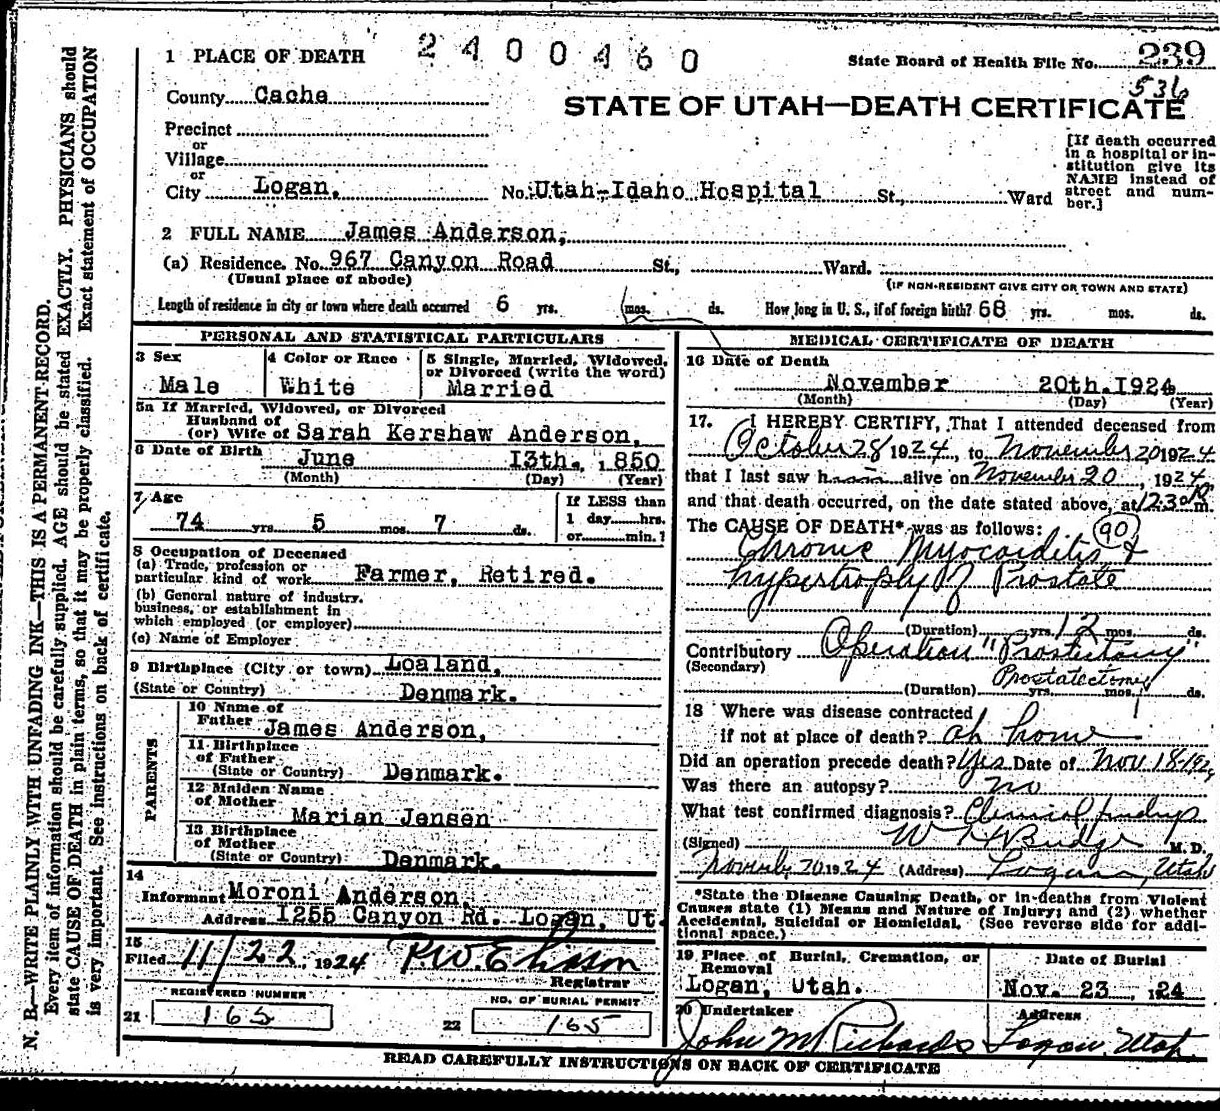 1 PLACE OF DEATH 2400460 State Board of Health File No. 239
536
County Cache
STATE OF UTAH—DEATH CERTIFICATE
Precinct
or
Village
or
City Logan. No. Utah-Idaho Hospital St., Ward
[If death occurred
in a hospital or in-
stitution give its
NAME instead of
street and num-
ber.]
2 FULL NAME James Anderson,
(a) Residence. No. 967 Canyon Road St., Ward.
(Usual place of abode) (IF NON-RESIDENT GIVE CITY OR TOWN AND STATE)
Length of residence in city or town where death occurred 6 yrs. mos. ds. How long in U. S., if of foreign birth? 68 yrs. mos. ds.
PERSONAL AND STATISTICAL PARTICULARS
3 Sex 4 Color or Race 5 Single, Married, Widowed,
or Divorced (write the word)
Male White Married
5a If Married, Widowed, or Divorced
Husband of
(or) Wife of Sarah Kershaw Anderson,
6 Date of Birth June 13th., 1850
(Month) (Day) (Year)
7 Age If LESS than
74 yrs. 5 mos. 7 ds. 1 day......hrs.
or......min.?
8 Occupation of Deceased
(a) Trade, profession or
particular kind of work Farmer, Retired.
(b) General nature of industry,
business, or establishment in
which employed (or employer)
(c) Name of Employer
9 Birthplace (City or town) Loaland,
(State or Country) Denmark.
PARENTS
10 Name of
Father James Anderson,
11 Birthplace
of Father
(State or Country) Denmark.
12 Maiden Name
of Mother
Marian Jensen
13 Birthplace
of Mother
(State or Country) Denmark.
14
Informant Moroni Anderson,
Address 1255 Canyon Rd. Logan, Ut.
15
Filed 11/22, 1924 Registrar
REGISTERED NUMBER NO. OF BURIAL PERMIT
21 165 22 165
MEDICAL CERTIFICATE OF DEATH
16 Date of Death
November 20th. 1924
(Month) (Day) (Year)
17. I HEREBY CERTIFY, That I attended deceased from
October 28 1924, to November 20 1924
that I last saw h alive on November 20, 1924
and that death occurred, on the date stated above, at 1230 P m.
The CAUSE OF DEATH* was as follows: 90
Chronic Myocarditis &
hypertrophy of Prostate
(Duration) yrs. 12 mos. ds.
Contributory Operation "Prostectomy"
(Secondary) Prostatectomy
(Duration) yrs. mos. ds.
18 Where was disease contracted
if not at place of death? at home
Did an operation precede death? Yes Date of Nov. 18-1924
Was there an autopsy? no
What test confirmed diagnosis? Clinical findings
(Signed) W H Budge M. D.
November 20 1924 (Address) Logan, Utah
*State the Disease Causing Death, or in deaths from Violent
Causes state (1) Means and Nature of Injury; and (2) whether
Accidental, Suicidal or Homicidal. (See reverse side for addi-
tional space.)
19 Place of Burial, Cremation, or Date of Burial
Removal
Logan, Utah. Nov. 23, 1924
20 Undertaker Address
John M Richards Logan, Utah.
READ CAREFULLY INSTRUCTIONS ON BACK OF CERTIFICATE
N. B.—WRITE PLAINLY WITH UNFADING INK—THIS IS A PERMANENT RECORD.
Every item of information should be carefully supplied. AGE should be stated EXACTLY. PHYSICIANS should
state CAUSE OF DEATH in plain terms, so that it may be properly classified. Exact statement of OCCUPATION
is very important. See instructions on back of certificate.